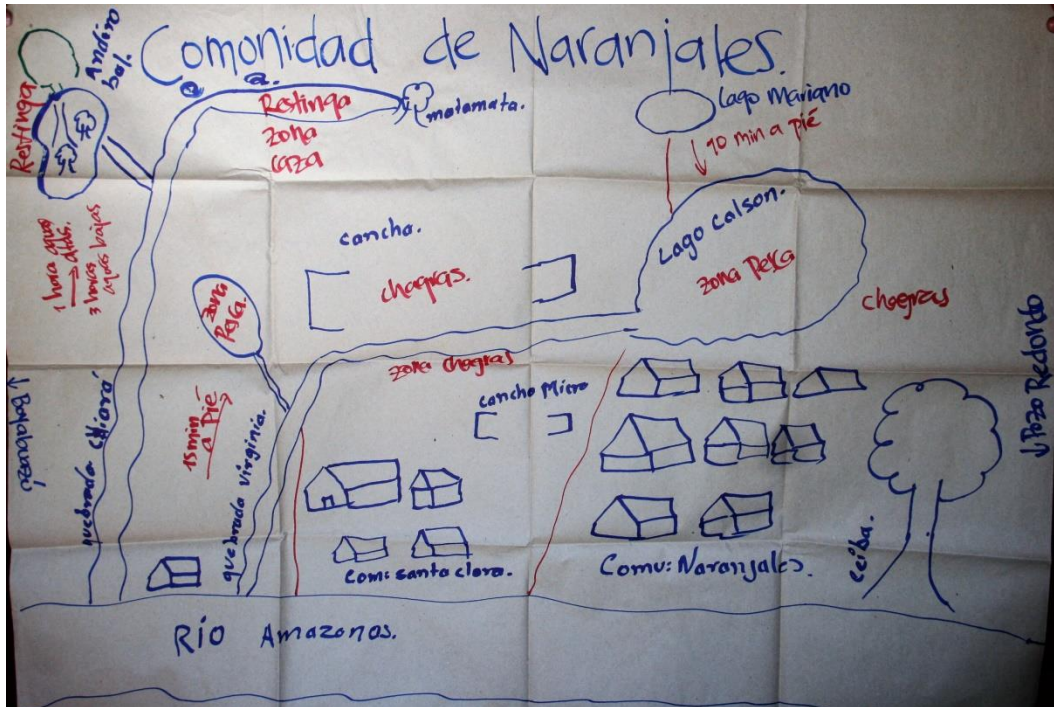 Comonidad de Naranjales.
Andiro
bal.
Restinga
a.
Restinga
zona
caza
matamata.
Lago Mariano
10 min a pié
1 hora aguas
altas.
3 horas
aguas bajas
cancha.
chagras.
Lago Calson.
zona Pesca
chagras
zona
Pesca.
zona chagras
cancho Micro
15 min
a Pié
quebrada virginia.
Com: santa clara.
Comu: Naranjales.
ceiba.
Pozo Redondo
RÍO Amazonas.